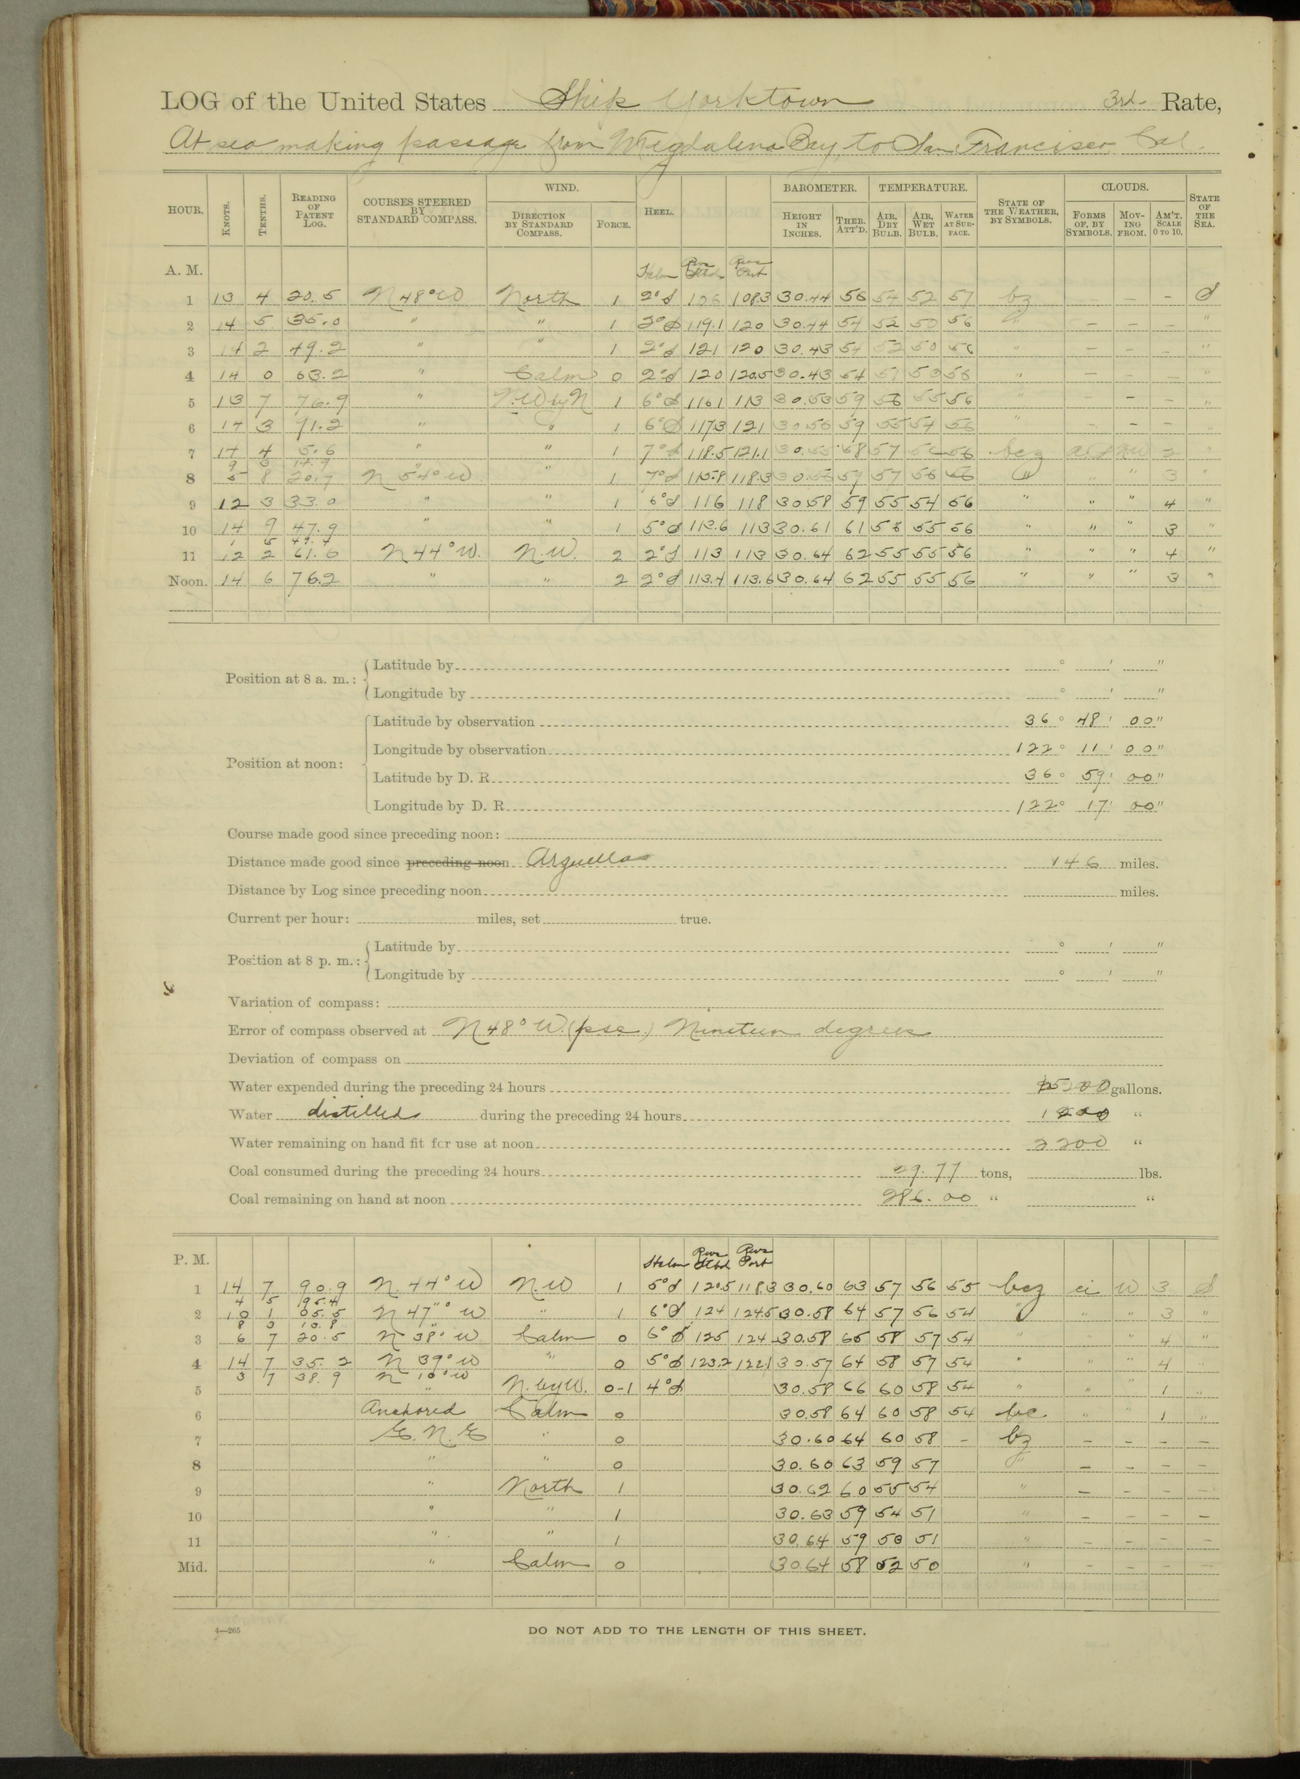 LOG of the United States Ship Yorktown 3rd Rate,
At sea making passage from Magdalena Bay to San Francisco Cal.
HOUR. KNOTS. TENTHS. READING OF PATENT LOG. COURSES STEERED BY STANDARD COMPASS. WIND. DIRECTION BY STANDARD COMPASS. FORCE. HEEL. BAROMETER. HEIGHT IN INCHES. THER. ATT'D. TEMPERATURE. AIR, DRY BULB. AIR, WET BULB. WATER AT SURFACE. STATE OF THE WEATHER, BY SYMBOLS. CLOUDS. FORMS OF, BY SYMBOLS. MOVING FROM. AM'T. SCALE 0 TO 10. STATE OF THE SEA.
A. M. Revs Stbd Revs Port
1 13 4 20.5 N 48° W North 1 2° 126 108.3 30.44 56 54 52 57 bz - - - S
2 14 5 35.0 " " 1 119.1 120 30.44 54 52 50 56 " - - - "
3 14 2 49.2 " " 1 2° 121 120 30.43 54 52 50 56 " - - - "
4 14 0 63.2 " Calm 0 2° 120 120.5 30.43 54 " - - - "
5 13 7 76.9 " N.W by N 1 6° 116.1 113 59 56 55 56 " - - - "
6 14 3 91.2 " " 1 6° 117.3 121 59 55 54 56 " - - -
7 14 4 5.6 " " 1 7° 118.5 121.1 58 57 56 bcz 2 "
9 3 14.9
8 5 8 20.7 N 54° W " 1 7° 115.8 118.3 59 57 56 56 " " " 3 "
9 12 3 33.0 " " 1 6° 116 118 30.58 59 55 54 56 " " " 4 "
10 14 9 47.9 " " 1 5° 113.6 113 30.61 61 56 55 56 " " " 3 "
1 5 49.4
11 12 2 61.6 N 44° W. N.W. 2 2° 113 113 30.64 62 55 55 56 " " " 4 "
Noon. 14 6 76.2 " " 2 2° 113.4 113.6 30.64 62 55 55 56 " " " 3 "
Position at 8 a. m.: Latitude by ° ' "
Longitude by ° ' "
Position at noon: Latitude by observation 36° 48' 00"
Longitude by observation 122° 11' 00"
Latitude by D. R. 36° 59' 00"
Longitude by D. R. 122° 17' 00"
Course made good since preceding noon:
Distance made good since preceding noon Arguello 146 miles.
Distance by Log since preceding noon miles.
Current per hour: miles, set true.
Position at 8 p. m.: Latitude by ° ' "
Longitude by ° ' "
Variation of compass:
Error of compass observed at N 48° W. (psc.) Nineteen degrees
Deviation of compass on
Water expended during the preceding 24 hours gallons.
Water distilled during the preceding 24 hours "
Water remaining on hand fit for use at noon 2200 "
Coal consumed during the preceding 24 hours 29.77 tons, lbs.
Coal remaining on hand at noon 286.00 " "
P. M. Revs Stbd Revs Port
1 14 7 90.9 N. 44° W N.W 1 5° 120.5 118.3 30.60 63 57 56 55 bcz ci W 3 S
4 5 95.4
2 10 1 05.5 N 47° W " 1 6° 124 124.5 30.58 64 57 56 54 " " " 3 "
8 3 13.8
3 6 7 20.5 N 38° W Calm 0 6° 125 124 30.58 65 58 57 54 " " " 4 "
4 14 7 35.2 N 39° W " 0 5° 123.2 122.1 30.57 64 58 57 54 " " " 4 "
3 7 38.9 N 10° W
5 " N. by W. 0-1 4° 30.58 66 60 58 54 " " " 1 "
6 Anchored Calm 0 30.58 64 60 58 54 bc " " 1 "
7 E. N. E " 0 30.60 64 60 58 - bz - - - -
8 " " 0 30.60 63 59 57 " - - - -
9 " North 1 30.62 60 55 54 " - - - -
10 " " 1 30.63 59 54 51 " - - - -
11 " " 1 30.64 59 53 51 " - - -
Mid. " Calm 0 30.64 58 52 50 " - - - -
4—265
DO NOT ADD TO THE LENGTH OF THIS SHEET.